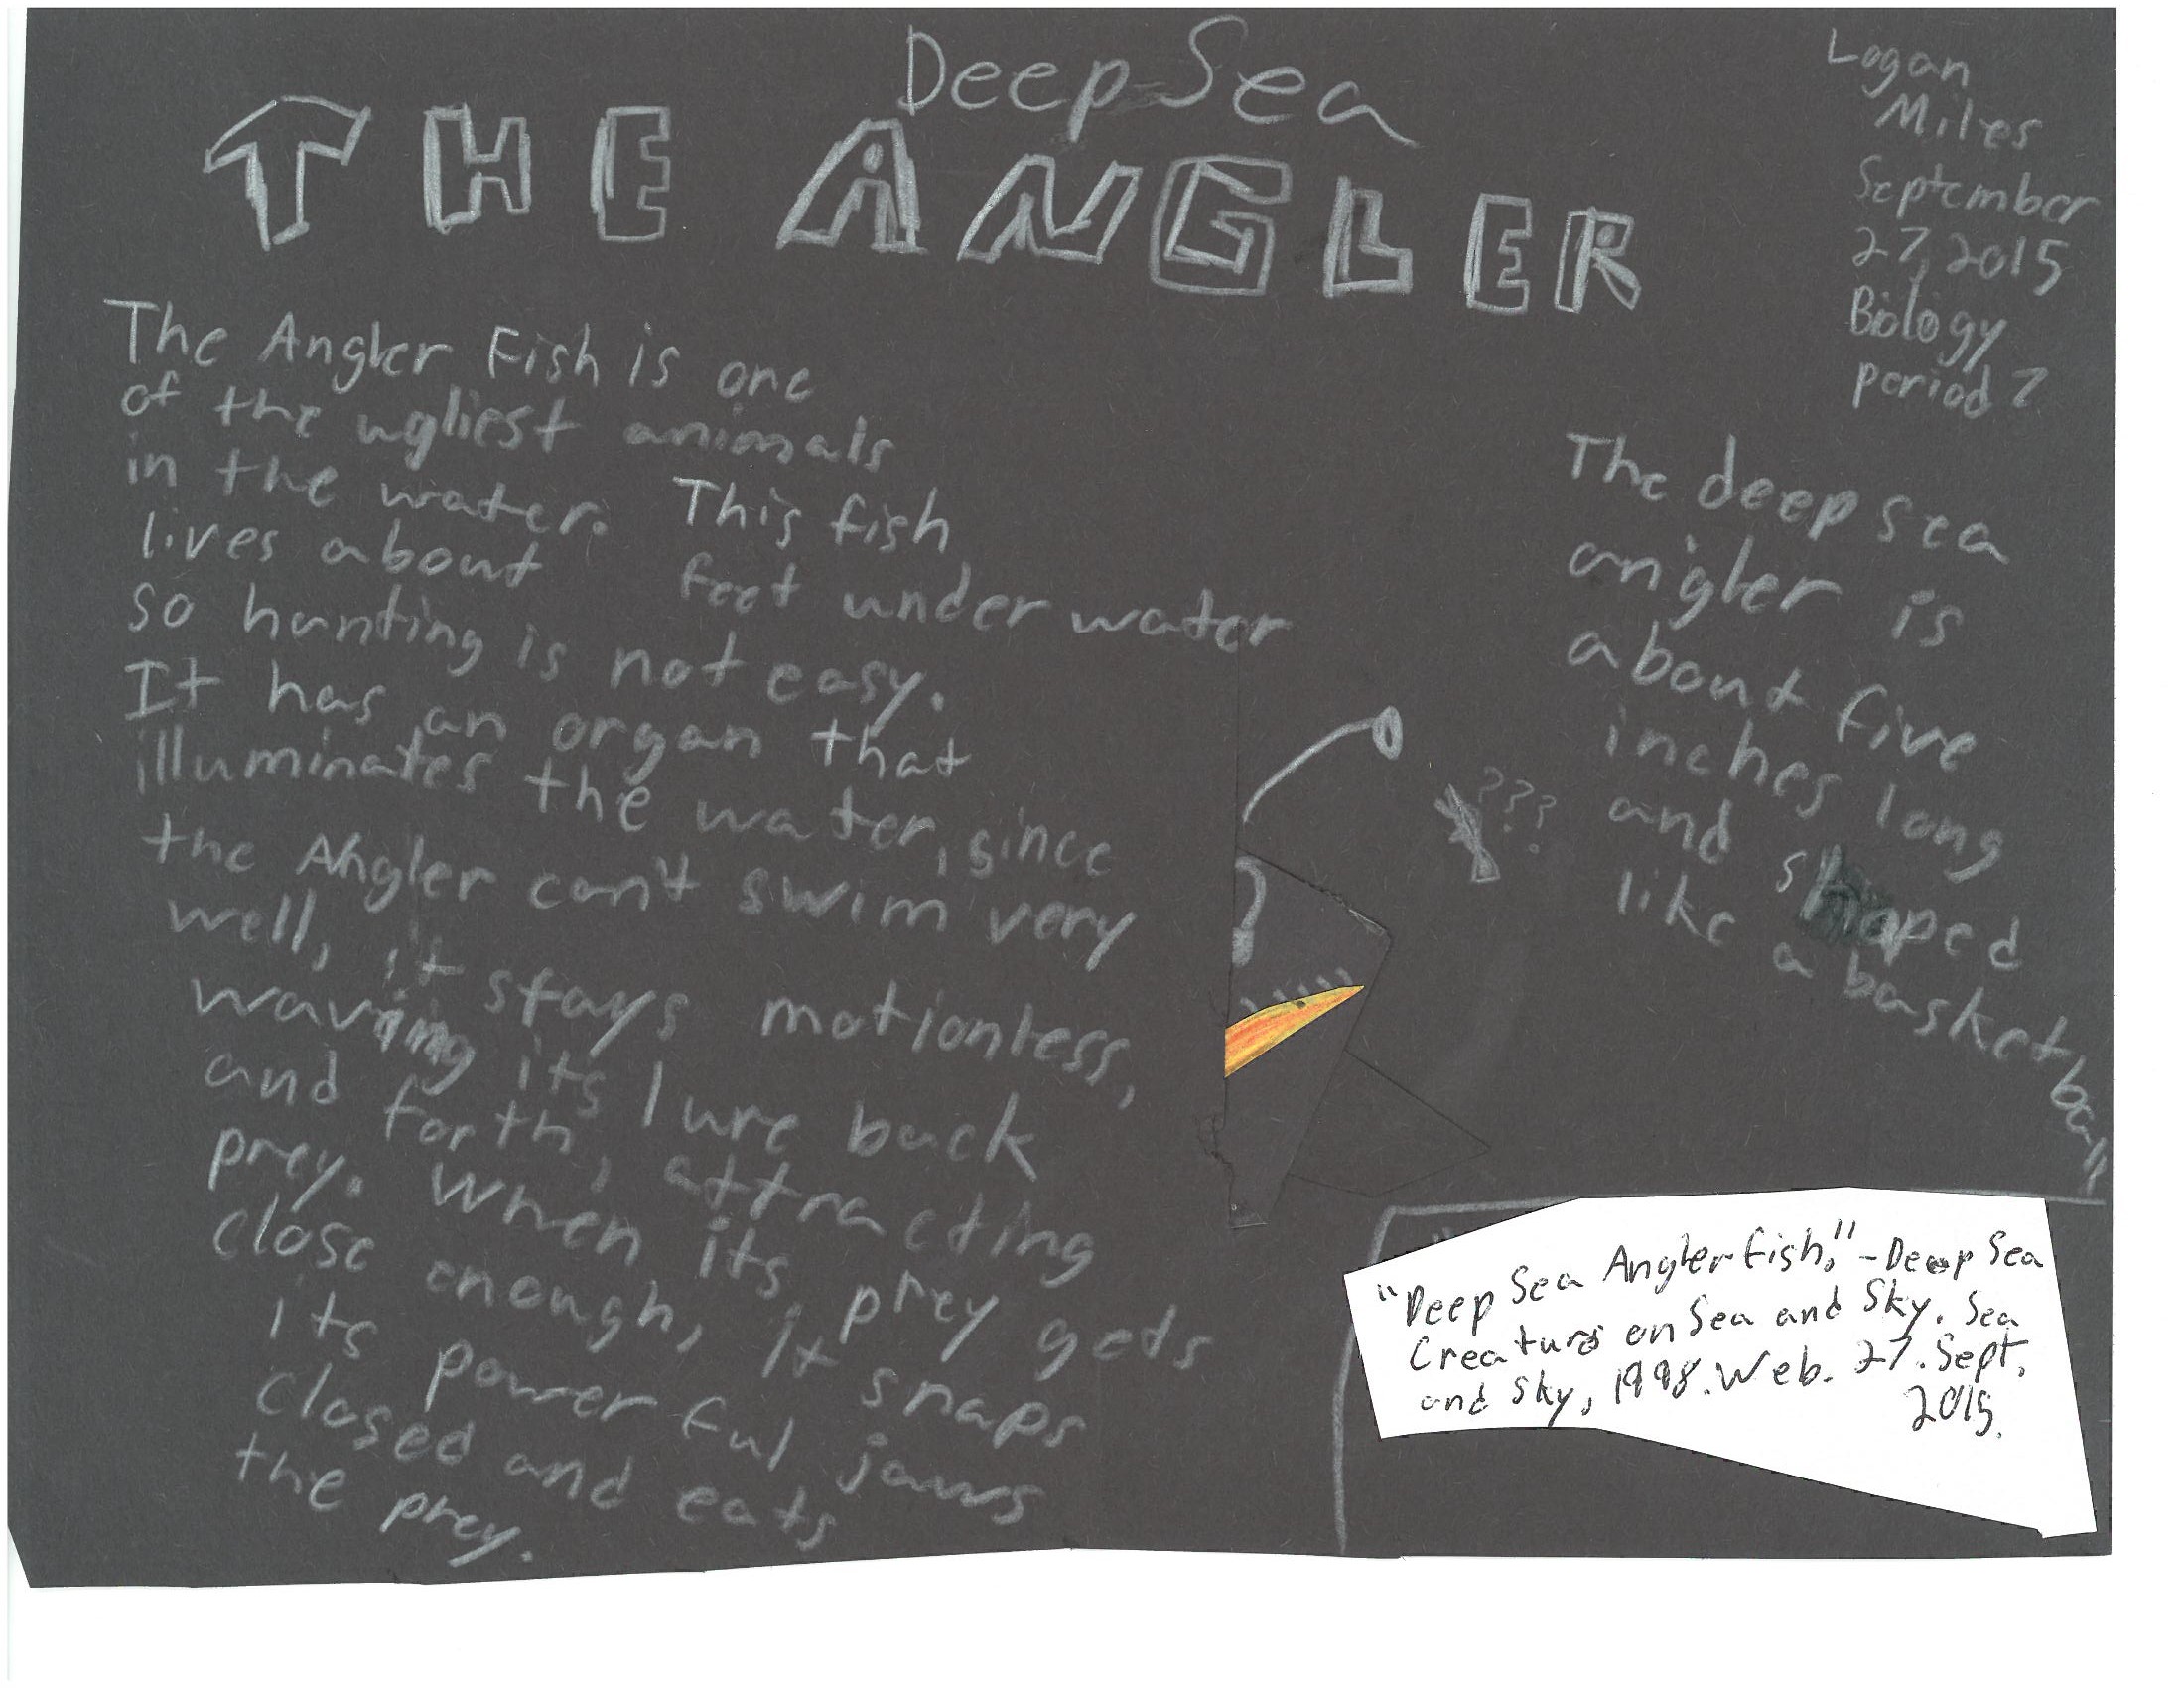 Deep Sea
THE ANGLER
Logan
Miles
September
27, 2015
Biology
period 7
The Angler Fish is one
of the ugliest animals
in the water. This fish
lives about feet under water
so hunting is not easy.
It has an organ that
illuminates the water, since
the Angler can't swim very
well, it stays motionless,
waving its lure back
and forth, attracting
prey. When its prey gets
close enough, it snaps
its powerful jaws
closed and eats
the prey.
The deep sea
angler is
about five
inches long
and shaped
like a basketball
???
"Deep Sea Anglerfish." - Deep Sea
Creatures on Sea and Sky. Sea
and Sky, 1998. Web. 27. Sept.
2015.